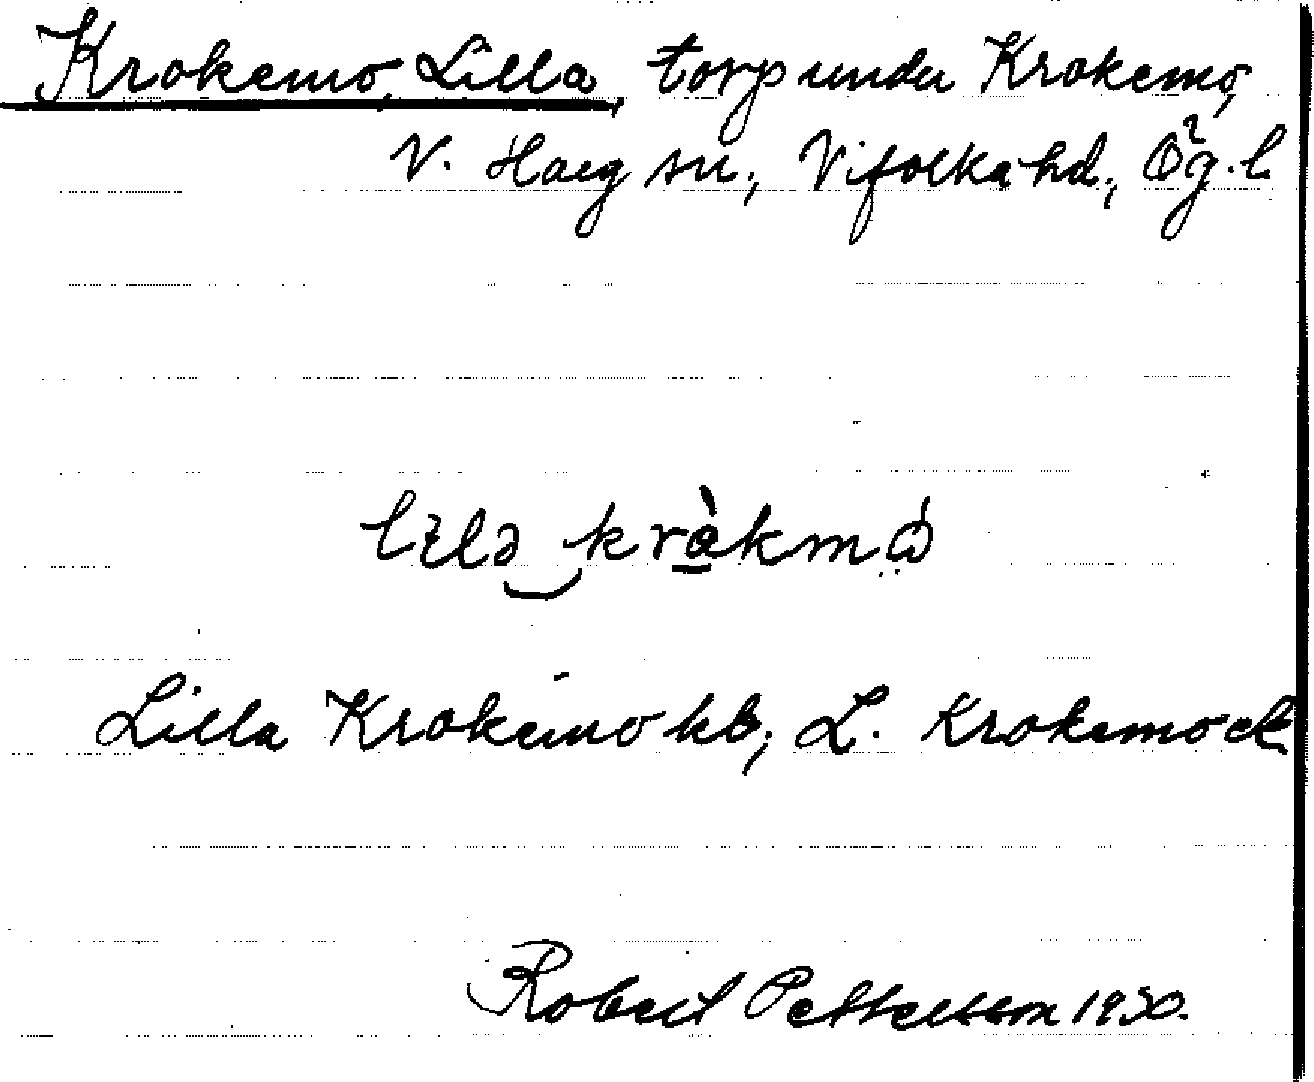 Krokemo, Lilla, torp under Krokemo,
V. Harg sn., Vifolka hd., Ög. l
lɪlə kràkmɷ̀
Lilla Krokemo kb; L. Krokemo ek
Robert Pettersson 1930.